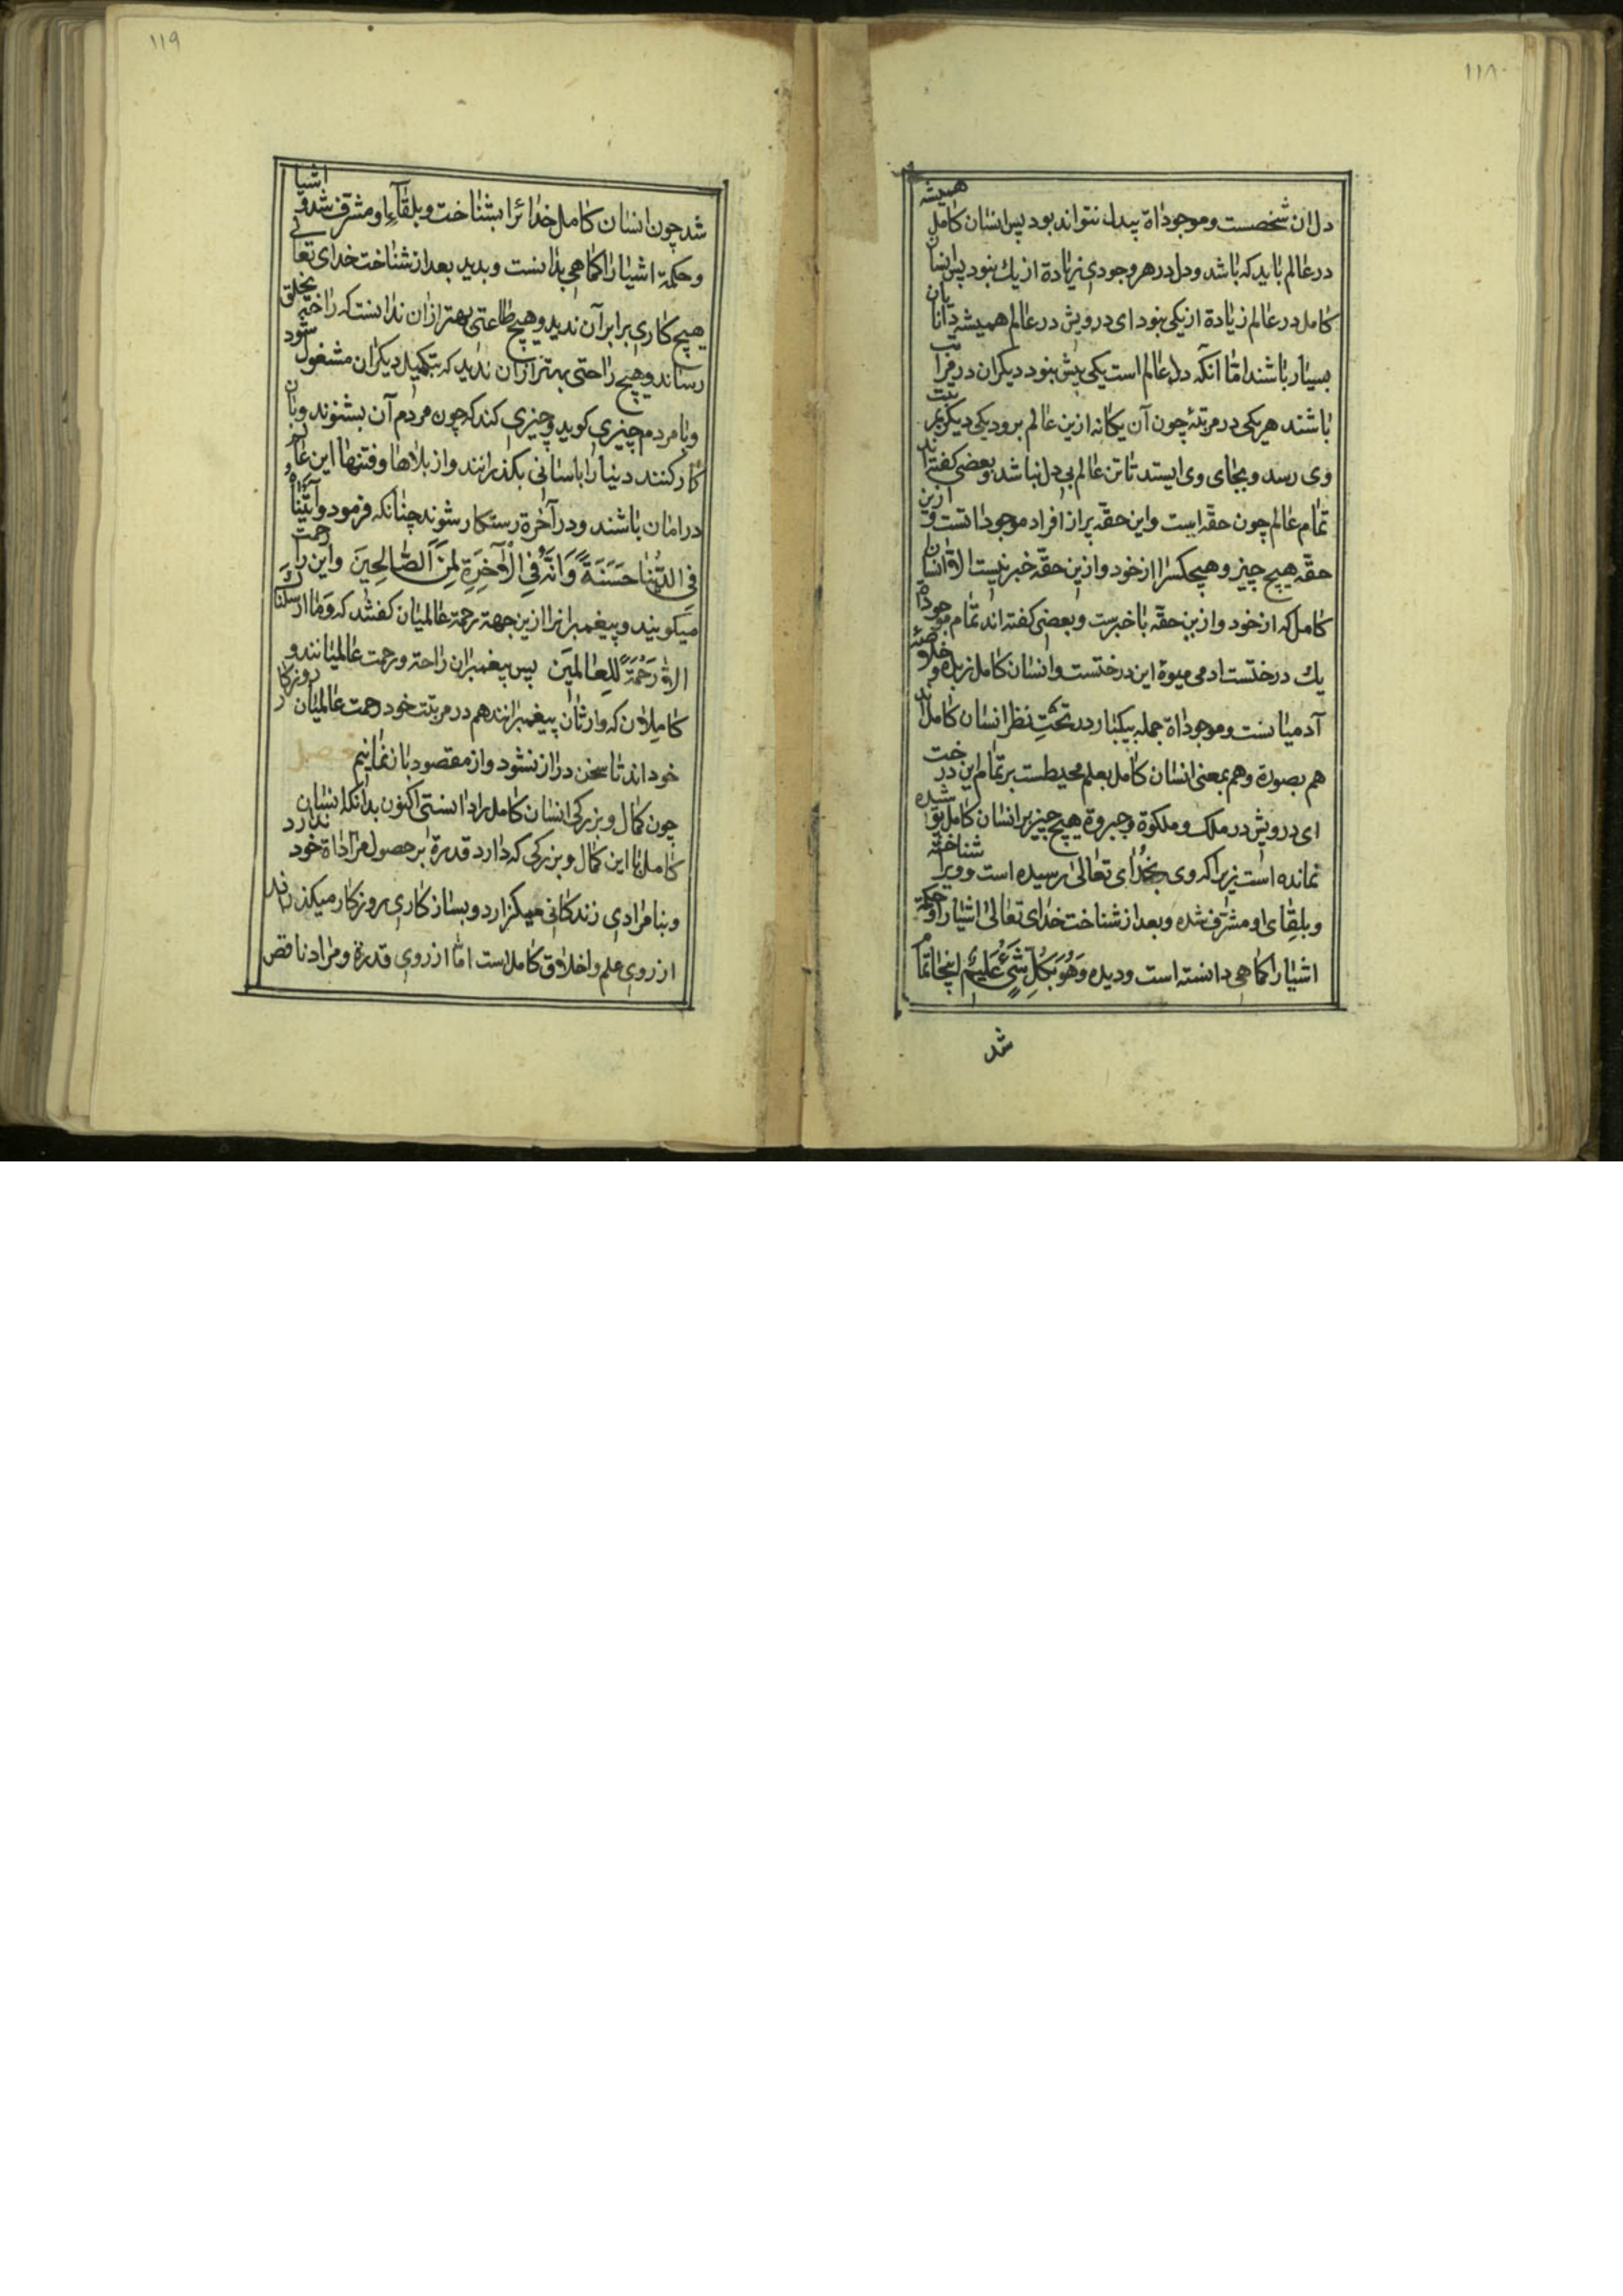 ١١٨
دل ان شخصست و موجوداة بیدل نتواند بود پس انسان کامل همیشه
در عالم باید که باشد و دل در هر وجودی زیادة از یك نبود پس انسان
کامل در عالم زیادة از یکی نبود ای درویش در عالم همیشه دانایان
بسیار باشند امّا انکه دل عالم است یکی بیش نبود دیکران در مراتب
باشند هر یکی در مرتبهٔ چون آن یکانه ازین عالم برود یکی دیکر بمرتبت
وی رسد و بجای وی ایستد تا تن عالم بی دل نباشد و بعضی کفته اند
تمام عالم چون حقّه است و این حقّه پر از افراد موجوداتست و ازین
حقّه هیچ چیز و هیچکس را از خود و ازین حقّه خبر نیست الاّ انسان
کامل که از خود و ازین حقّه با خبرست و بعضی کفته اند تمام موجوداة
یك درختست ادمی میوهٔ این درختست و انسان کامل زبده و خلاصهٔ
آدمیانست و موجوداة جمله بیکبار در تحتِ نظر انسان کامل اند
هم بصورة و هم بمعنی انسان کامل بعلم محیطست بر تمام این درخت
ای درویش در ملک و ملکوة و جبروة هیچ چیز بر انسان کامل پوشیده
نمانده است زیرا که وی بخدای تعالی رسیده است و ویرا شناخته
و بلقای او مشرّف شده و بعد از شناخت خدای تعالی اشیارا و حکمة
اشیارا کماهی دانسته است و دیده وَهُوَ بِکُلِّ شَیْءٍ عَلیمٌ اینجا تمام
شد
١١٩
شد چون انسان کامل خدائرا بشناخت و بلقآءِ او مشرّف شد و اشیا
و حکمة اشیارا کماهی بدانست و بدید بعد از شناخت خدای تعالی
هیچ کاری برابر آن ندید و هیچ طاعتی بهتر ازان ندانست که راحتی بخلق
رساند و هیچ راحتی بهتر ازان ندید که بتکمیل دیکران مشغول شود
و با مردم چیزی کوید و چیزی کند که چون مردم آن بشنوند و بان
کار کنند دنیارا باسانی بکذرانند و از بلاها و فتنها این عالم
در امان باشند و در آخرة رستکار شوند چنانکه فرمود وآتَیْناهُ
فِی الدُّنْیا حَسَنَةً وَاِنَّهُ فِی الْآخِرَةِ لَمِنَ الصّالِحِینَ و این را رحمت
میکویند و پیغمبرانرا ازین جهة رحمة عالمیان کفتند که وَمٰا اَرْسَلْناكَ
الاّ رَحْمَةً لِلْعالَمینَ پس پیغمبران راحة و رحمت عالمیانند و
کاملان که وارثان پیغمبرانند هم در مرتبت خود رحمت عالمیان روزکار
خود اند تا سخن دراز نشود و از مقصود باز نمانیم فصل
چون کمال و بزرکی انسان کامل را دانستی اکنون بدانکه انسان
کامل با این کمال و بزرکی که دارد قدرة بر حصول مراداة خود ندارد
و بنامرادی زندکانی میکزارد و بسازکاری روزکار میکذراند
از روی علم و اخلاق کاملست امّا از روی قدرة و مراد ناقص